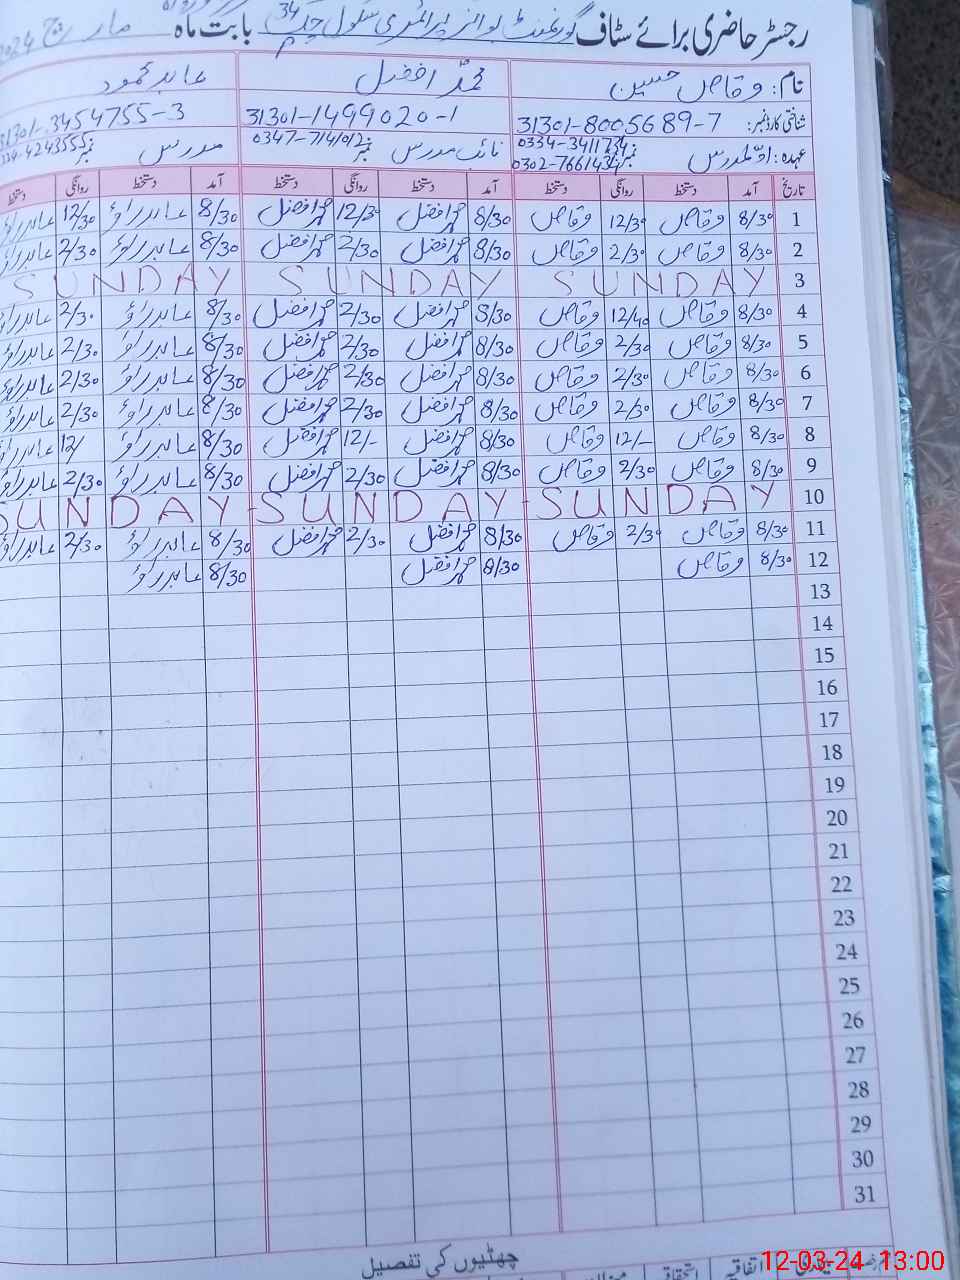 رجسٹر حاضری برائے سٹاف گورنمنٹ بوائز پرائمری سکول چک 34 بابت ماہ مارچ 2024
نام: وقاص حسین محمد افضل عابد محمود
شناختی کارڈ نمبر: 31301-8005689-7 31301-1499020-1 31301-3454755-3
عہدہ: اوّل مدرس نمبر 0334-3411734 0302-7661434 نائب مدرس نمبر 0347-7141012 مدرس نمبر
تاریخ آمد دستخط روانگی دستخط آمد دستخط روانگی دستخط آمد دستخط روانگی دستخط
1 8/30 وقاص 12/30 وقاص 8/30 محمد افضل 12/30 محمد افضل 8/30 عابد راؤ 12/30 عابد راؤ
2 8/30 وقاص 2/30 وقاص 8/30 محمد افضل 2/30 محمد افضل 8/30 عابد راؤ 2/30 عابد راؤ
3 SUNDAY SUNDAY SUNDAY
4 8/30 وقاص 12/40 وقاص 8/30 محمد افضل 2/30 محمد افضل 8/30 عابد راؤ 2/30 عابد راؤ
5 8/30 وقاص 2/30 وقاص 8/30 محمد افضل 2/30 محمد افضل 8/30 عابد راؤ 2/30 عابد راؤ
6 8/30 وقاص 2/30 وقاص 8/30 محمد افضل 2/30 محمد افضل 8/30 عابد راؤ 2/30 عابد راؤ
7 8/30 وقاص 2/30 وقاص 8/30 محمد افضل 2/30 محمد افضل 8/30 عابد راؤ 2/30 عابد راؤ
8 8/30 وقاص 12/- وقاص 8/30 محمد افضل 12/- محمد افضل 8/30 عابد راؤ 12/ عابد راؤ
9 8/30 وقاص 2/30 وقاص 8/30 محمد افضل 2/30 محمد افضل 8/30 عابد راؤ 2/30 عابد راؤ
10 SUNDAY-SUNDAY-SUNDAY
11 8/30 وقاص 2/30 وقاص 8/30 محمد افضل 2/30 محمد افضل 8/30 عابد راؤ 2/30 عابد راؤ
12 8/30 وقاص 8/30 محمد افضل 8/30 عابد راؤ
13
14
15
16
17
18
19
20
21
22
23
24
25
26
27
28
29
30
31
چھٹیوں کی تفصیل
اتفاقیہ استحقاقیہ
12-03-24 13:00